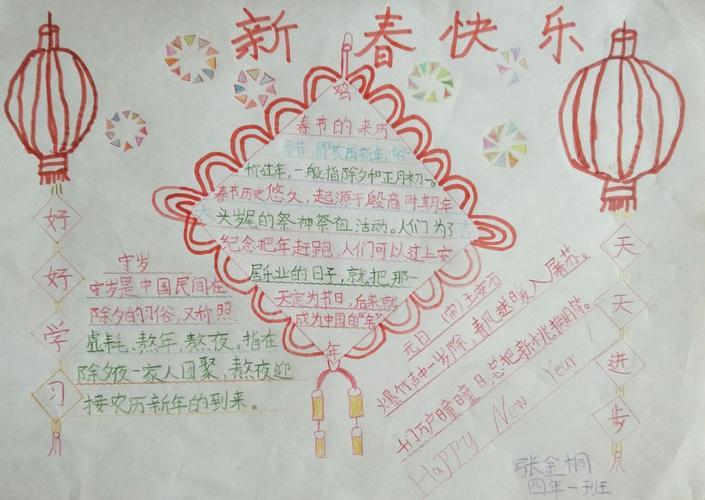 新春快乐
好好学习
鸡
春节的来历
春节,即农历新年,俗
称过年,一般指除夕和正月初一。
春节历史悠久,起源于殷商时期年
头岁尾的祭神祭祖活动。人们为了
纪念把年赶跑,人们可以过上安
居乐业的日子,就把那一
天定为节日,后来就
成为中国的"年"
年
守岁
守岁是中国民间在
除夕的习俗,又称照
虚耗、熬年、熬夜。指在
除夕夜一家人团聚,熬夜迎
接农历新年的到来。
元日 (宋)王安石
爆竹声中一岁除,春风送暖入屠苏。
千门万户曈曈日,总把新桃换旧符。
Happy New Year!
天天进步
张金桐
四年一班